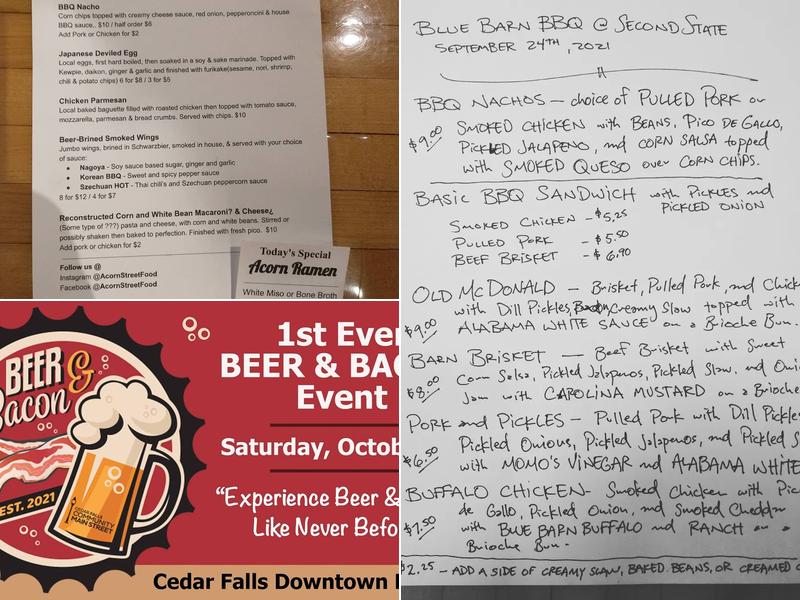 BBQ Nacho
Corn chips topped with creamy cheese sauce, red onion, pepperoncini & house
BBQ sauce,. $10 / half order $6
Add Pork or Chicken for $2
Japanese Deviled Egg
Local eggs, first hard boiled, then soaked in a soy & sake marinade. Topped with
Kewpie, daikon, ginger & garlic and finished with furikake(sesame, nori, shrimp,
chili & potato chips) 6 for $8 / 3 for $5
Chicken Parmesan
Local baked baguette filled with roasted chicken then topped with tomato sauce,
mozzarella, parmesan & bread crumbs. Served with chips. $10
Beer-Brined Smoked Wings
Jumbo wings, brined in Schwarzbier, smoked in house, & served with your choice
of sauce:
• Nagoya - Soy sauce based sugar, ginger and garlic
• Korean BBQ - Sweet and spicy pepper sauce
• Szechuan HOT - Thai chili's and Szechuan peppercorn sauce
8 for $12 / 4 for $7
Reconstructed Corn and White Bean Macaroni? & Cheese¿
(Some type of ???) pasta and cheese, with corn and white beans. Stirred or
possibly shaken then baked to perfection. Finished with fresh pico. $10
Add pork or chicken for $2
Follow us @
Instagram @AcornStreetFood
Facebook @AcornStreetFood
Today's Special
Acorn Ramen
White Miso or Bone Broth
BEER &
Bacon
EST. 2021
CEDAR FALLS
COMMUNITY
MAIN STREET
1st Ever
BEER & BAC
Event
Saturday, Octob
"Experience Beer &
Like Never Befo
Cedar Falls Downtown
BLUE BARN BBQ @ SECOND STATE
SEPTEMBER 24TH, 2021
BBQ NACHOS — choice of PULLED PORK or
$9.00 SMOKED CHICKEN with BEANS, PICO DE GALLO,
PICKLED JALAPENO, and CORN SALSA topped
with SMOKED QUESO over CORN CHIPS.
BASIC BBQ SANDWICH with PICKLES and
PICKLED ONION
SMOKED CHICKEN - $5.25
PULLED PORK - $5.50
BEEF BRISKET - $6.90
OLD McDONALD - Brisket, Pulled Pork, and Chick
with Dill Pickles, Creamy Slaw topped with
$9.00 ALABAMA WHITE SAUCE on a Brioche Bun.
BARN BRISKET — Beef Brisket with Sweet
$8.00 Corn Salsa, Pickled Jalapenos, Pickled Slaw, and Oni
Jam with CAROLINA MUSTARD on a Brioche
PORK and PICKLES - Pulled Pork with Dill Pickles
Pickled Onions, Pickled Jalapenos, and Pickled S
$6.50 with MOMO'S VINEGAR and ALABAMA WHITE
BUFFALO CHICKEN - Smoked Chicken with Pic
de Gallo, Pickled Onion, and Smoked Cheddar
$7.50 with BLUE BARN BUFFALO and RANCH on a
Brioche Bun.
$2.25 - ADD A SIDE OF CREAMY SLAW, BAKED BEANS, OR CREAMED C